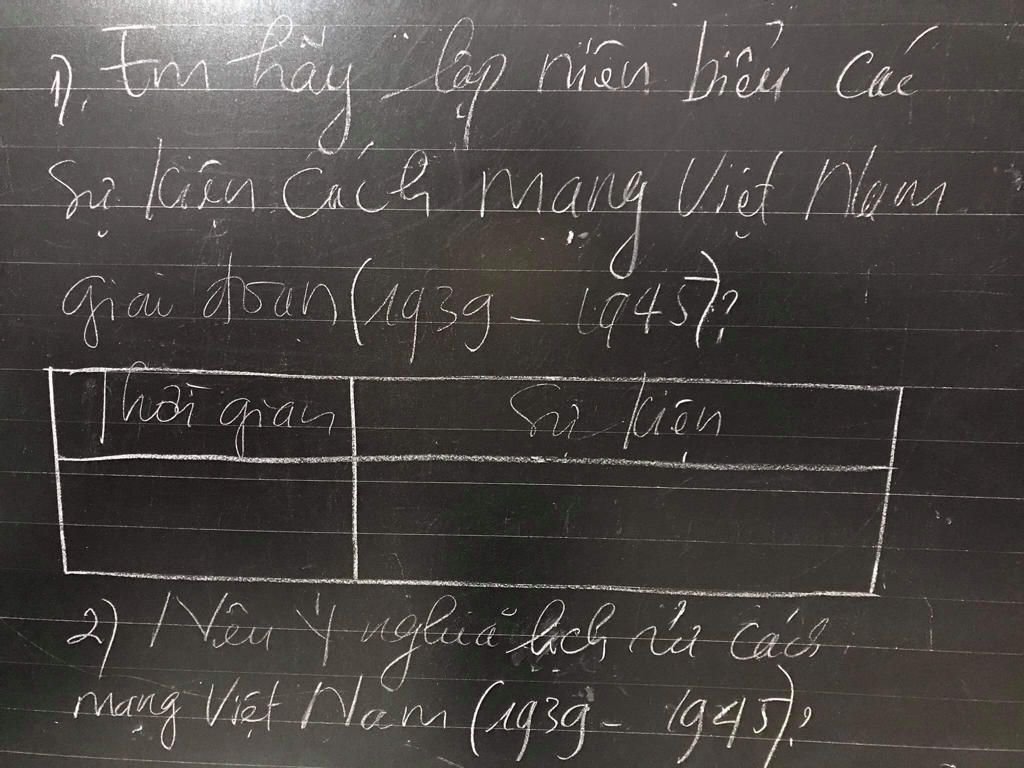 1). Em hãy lập niên biểu các
sự kiện cách mạng Việt Nam
giai đoan (1939 - 1945)?
Thời gian
Sự kiện
2) Nêu ý nghĩa lịch sử cách
mạng Việt Nam (1939 - 1945)?